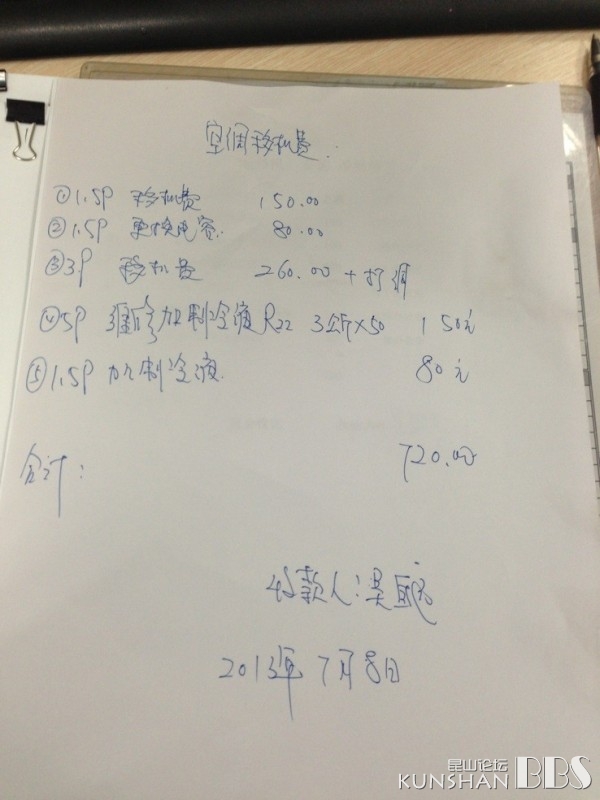 空调移机费.
①1.5P 移机费 150.00
②1.5P 更换电容. 80.00
③3P 移机费 260.00 + 打洞
④5P 维修加制冷液R22 3公斤×50 150元
⑤1.5P 加制冷液. 80元
合计: 720.00
收款人:吴
2013年7月8日
昆山论坛
KUNSHAN BBS